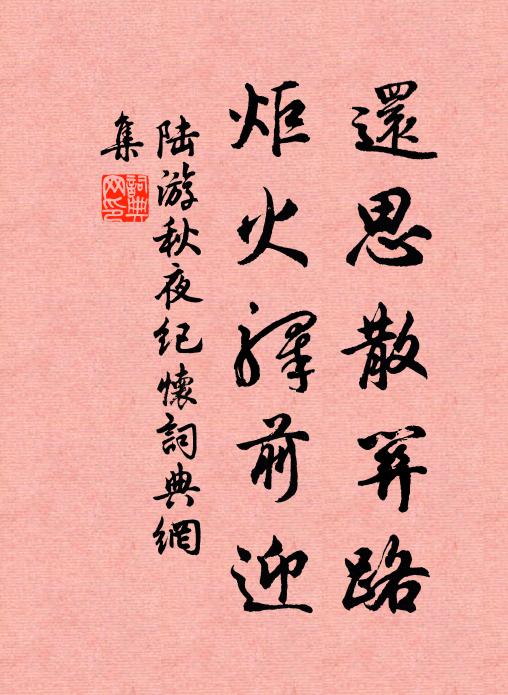 還思散關路
炬火驛前迎
陸游秋夜紀懷詞典網
集
詞典
网印